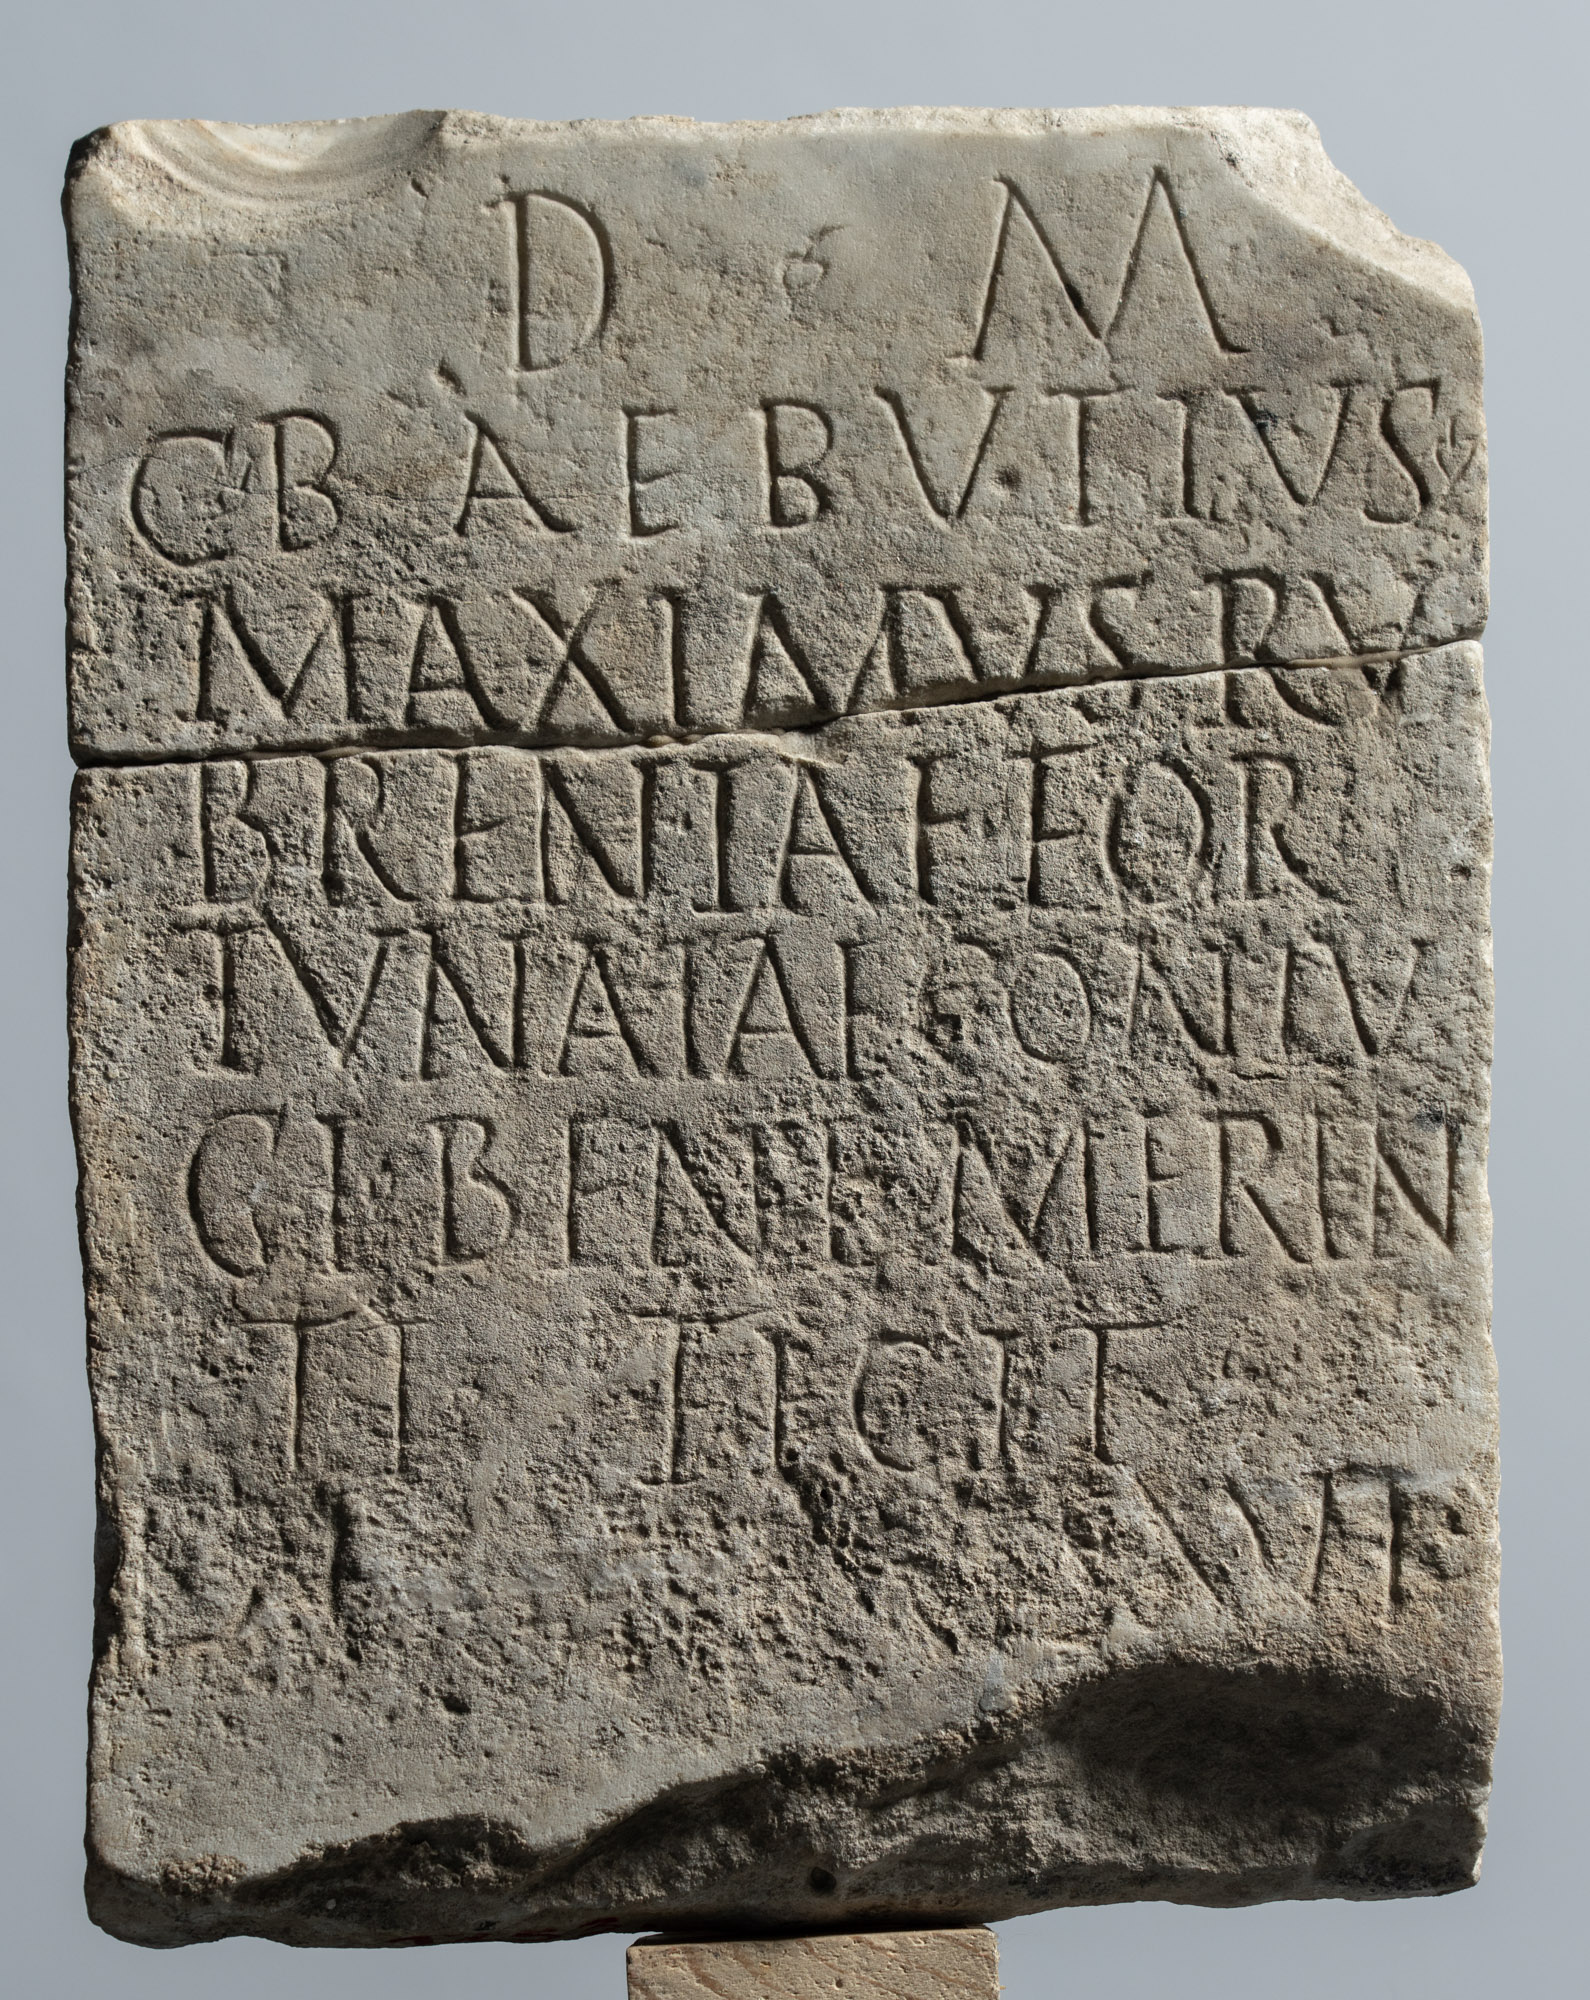 D M
C BAEBVTIVS
MAXIMVS RV
BRENTAE FOR
TVNATAE CONIV
GI BENE MERIN
TI FECIT